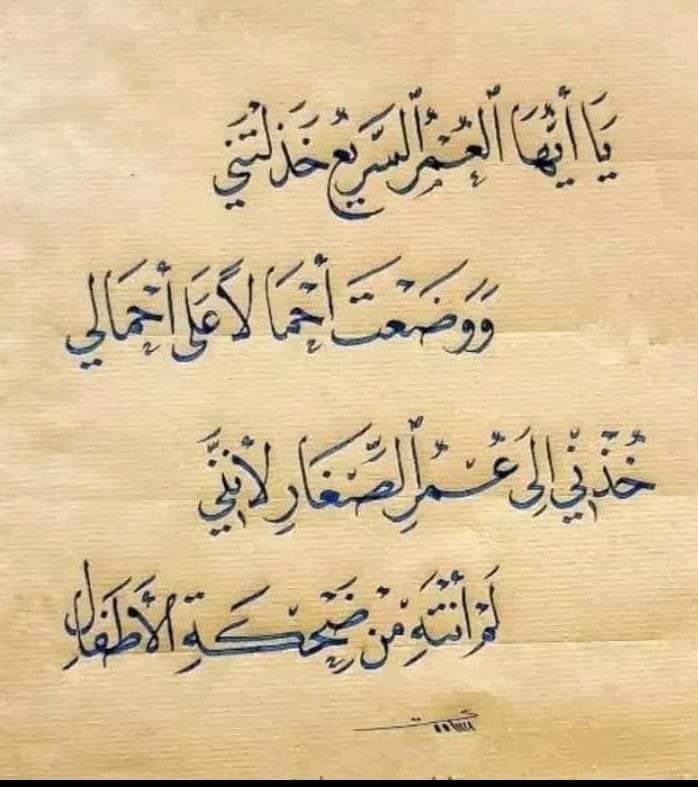 يَا أَيُّهَا الْعُمْرُ السَّرِيعُ خَذَلْتَنِي
وَوَضَعْتَ أَحْمَالًا عَلَى أَحْمَالِي
خُذْنِي إِلَى عُمْرِ الصِّغَارِ لِأَنَّنِي
لَمْ أَنْتَهِ مِنْ ضَحْكَةِ الْأَطْفَالِ